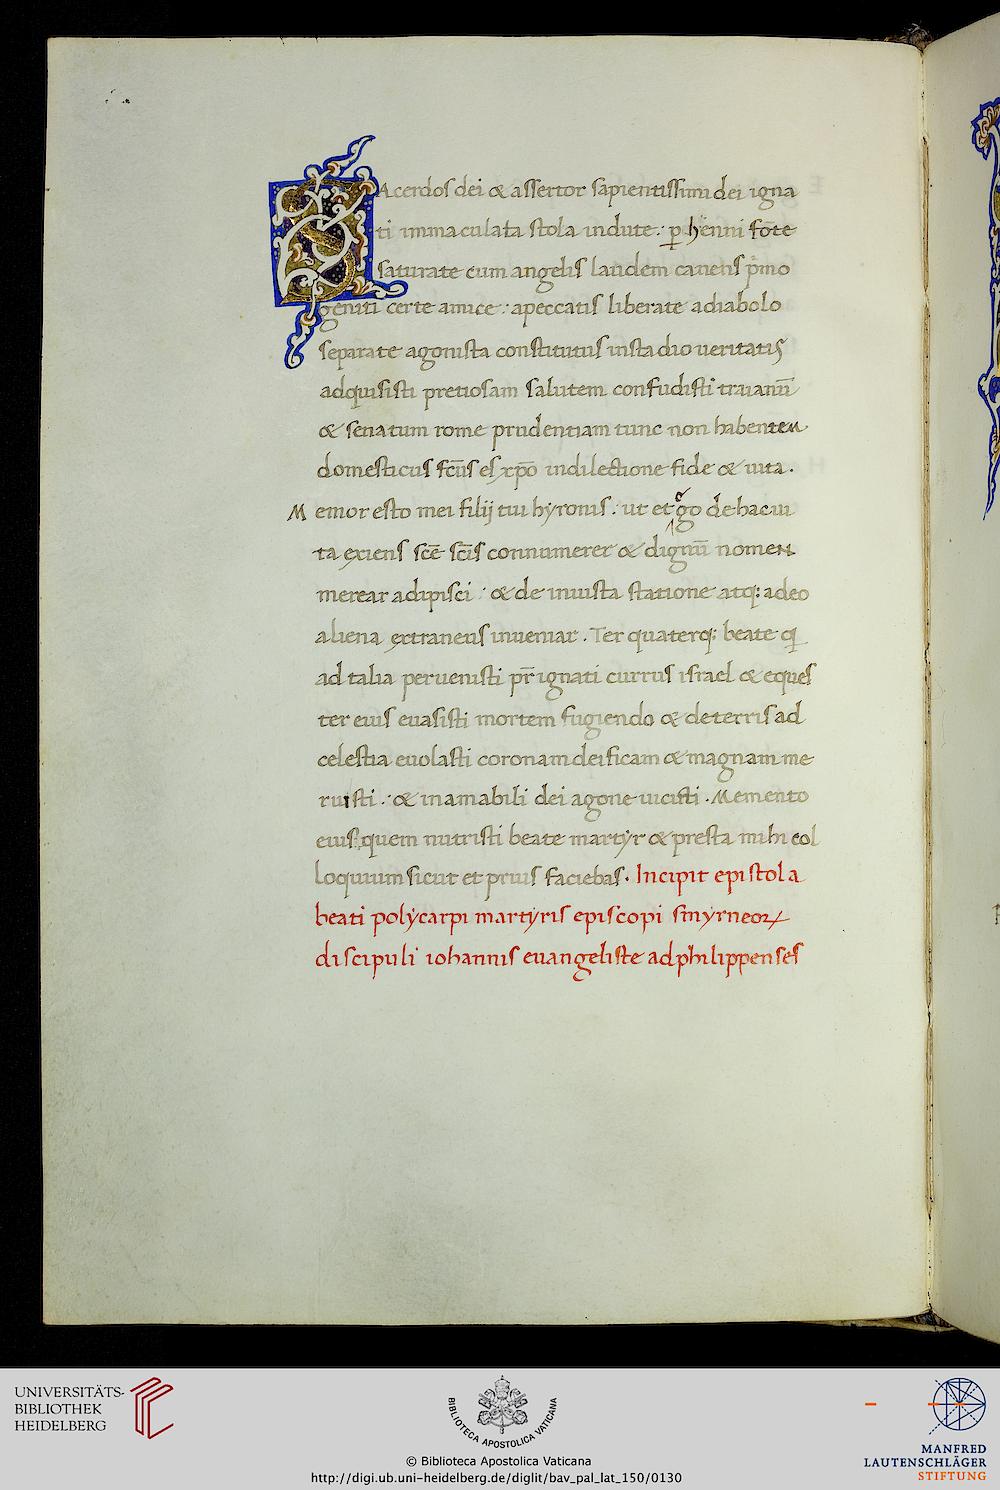 SAcerdos dei & assertor sapientissimi dei igna
ti immaculata stola indute: p henni fōte
saturate cum angelis laudem canens p̄mo
geniti certe amice: apeccatis liberate adiabolo
separate agonista constitutus instadio ueritatis
adquisisti pretiosam salutem confudisti traianū
& senatum rome prudentiam tunc non habentem
domesticus fc̄us es xp̄o indilectione fide & uita.
Memor esto mei filij tui hyronis. ut et ego de hac ui
ta exiens scē sc̄is connumerer & dignū nomen
merear adipisci: & de iniusta statione atq; adeo
aliena extraneus inueniar. Ter quaterq; beate q
ad talia peruenisti pr̄ ignati currus israel & eques
ter eius euasisti mortem fugiendo & deterris ad
celestia euolasti coronam deificam & magnam me
ruisti: & inamabili dei agone uicisti. Memento
eius quem nutristi beate martyr & presta mihi col
loquium sicut et prius faciebas. Incipit epistola
beati polycarpi martyris episcopi smyrneoꝝ
discipuli iohannis euangeliste adphilippenses
UNIVERSITÄTS-
BIBLIOTHEK
HEIDELBERG
BIBLIOTECA APOSTOLICA VATICANA
© Biblioteca Apostolica Vaticana
http://digi.ub.uni-heidelberg.de/diglit/bav_pal_lat_150/0130
MANFRED
LAUTENSCHLÄGER
STIFTUNG